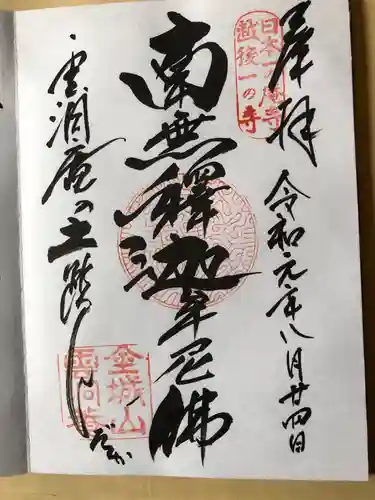 奉拝
令和元年八月廿四日
日本一の庵寺
越後一の寺
南無釋迦牟尼佛
雲洞庵の土踏んだか
金城山
雲洞菴